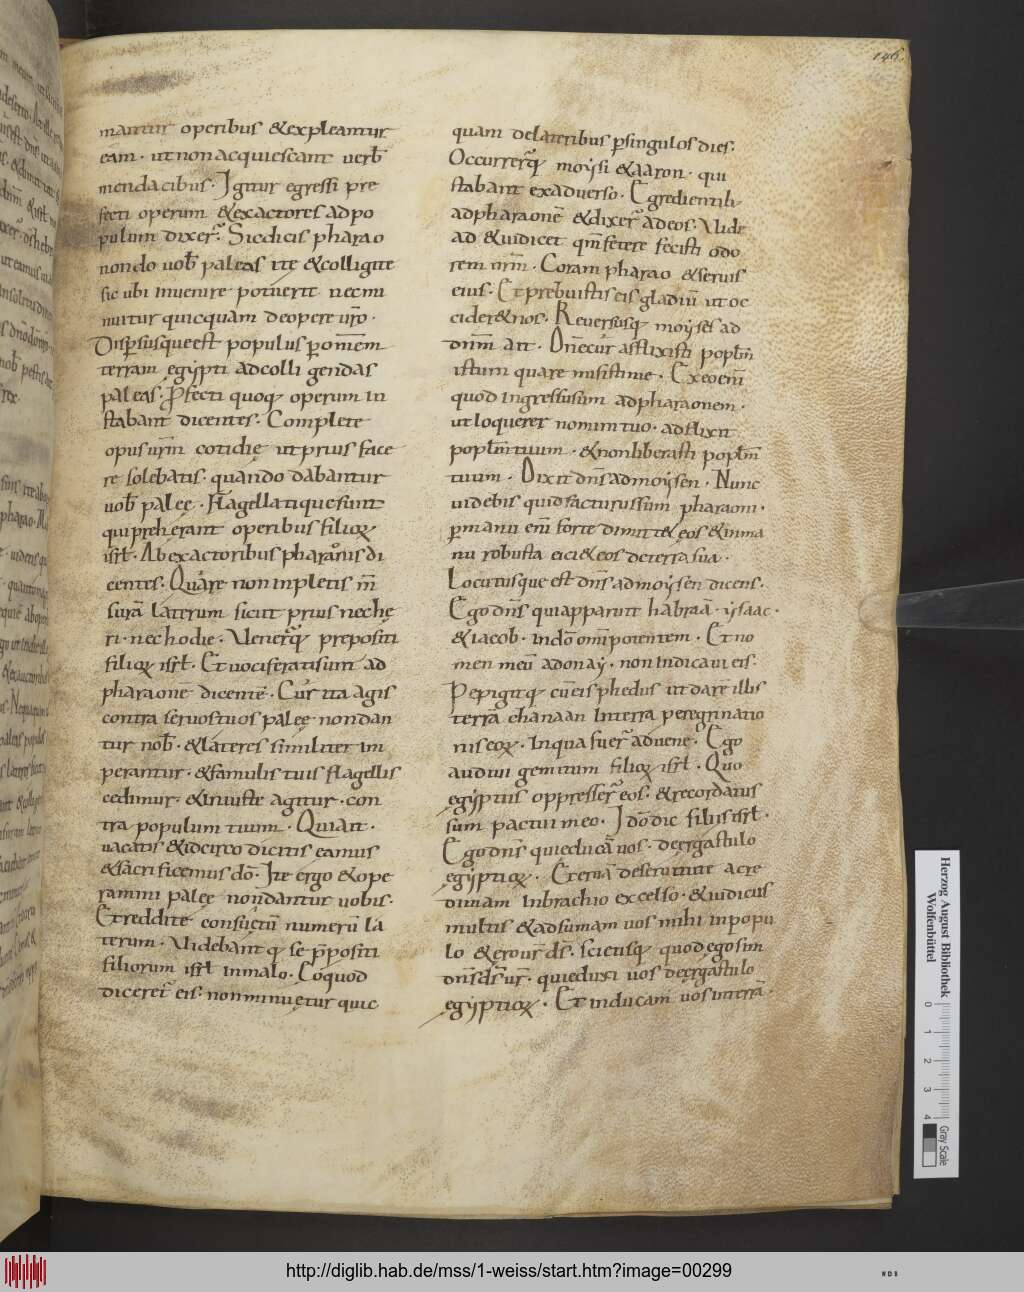 146.
mantur operibus & expleantur
eam · ut non acquiescant verƀ
mendacibus · Igitur egressi pre
fecti operum & exactores ad po
pulum dixer̄ · Sic dicit pharao
non do uoƀ paleas ite & colligite
sic ubi invenire potuerit nec mi
nuitur quicquam de opere uro ·
Dispersusque est populus p omnem
terram egypti ad colligendas
paleas · Pfecti quoq operum in
stabant dicentes · Complete
opus urm cotidie ut prius face
re solebatis · quando dabantur
uoƀ palee · Flagellatique sunt
qui preherant operibus filioꝝ
isrł · Ab exactoribus pharaonis di
centes · Quare non inpletis m̄
suram laterum sicut prius neche
ri · nec hodie · Venerq prepositi
filioꝝ isrł · Et uociferati sunt ad
pharaonē dicentē · Cur ita agis
contra seruos tuos palee non dan
tur noƀ · & lateres similiter im
perantur · & famuli tui flagellis
cedimur · & iniuste agitur · con
tra populum tuum · Qui ait ·
uacatis & idcirco dicitis eamus
& sacrificemus dō · Ite ergo & ope
ramini palee non dantur uobis ·
Et reddite consuetū numerū la
terum · Videbant q se p̄positi
filiorum isrł in malo · Eo quod
diceret eis · non minuetur quic
quam de lateribus p singulos dies ·
Occurrerq moysi & aaron · qui
stabant ex aduerso · Egredientib;
ad pharaonē & dixer̄ ad eos · Vide
at & iudicet qm fetere fecisti odo
rem nrm · Coram pharao & seruis
eius · Et prebuistis eis gladiū ut oc
cider& nos · Reuersusq moyses ad
dnm ait · Dne cur afflixisti poplm
istum quare misisti me · Ex eo em
quod ingressus sum ad pharaonem ·
ut loquerer nomini tuo · adflixit
poplm tuum · & non liberasti poplm
tuum · Dixit dns ad moysen · Nunc
uidebis quid facturus sum pharaoni ·
p manu em forte dimitt& eos & in ma
nu robusta eici& eos de terra sua ·
Locutusque est dns ad moysen dicens ·
Ego dns qui apparui habraā · ysaac ·
& iacob · in do omipotentem · Et no
men meū adonay · non indicaui eis ·
Pepigi q cū eis phedus ut darē illis
terrā chanaan In terra peregrinatio
nis eoꝝ · In qua fuer̄ aduene · Ego
audiui gemitum filioꝝ isrł · Quo
egyptiis oppresser̄ eos · & recordatus
sum pacti meo · Ido dic filiis isrł ·
Ego dns qui educā uos · de ergastulo
egyptioꝝ · Et eruā de seruitute ac re
dimam In brachio excelso · & iudiciis
multis & adsumam uos mihi in popu
lo & ero ur ds · scietisq quod ego sim
dns ds ur · qui eduxi uos de ergastulo
egyptioꝝ · Et inducam uos in terrā ·
Herzog August Bibliothek
Wolfenbüttel
0 1 2 3 4
Gray Scale
http://diglib.hab.de/mss/1-weiss/start.htm?image=00299